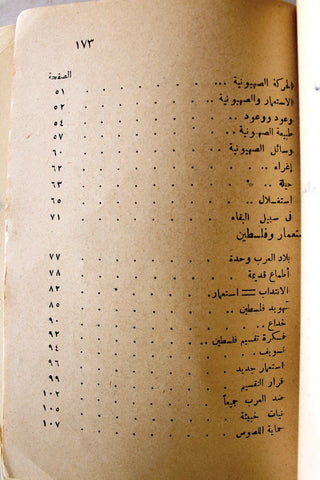 ١٧٣
الصفحة
الحركة الصهيونية .. . . . . . . ٥١
الاستعمار والصهيونية .. . . . . . . ٥٢
وعود ووعود .. . . . . . . ٥٤
طبيعة الصهيونية .. . . . . . . ٥٧
وسائل الصهيونية . . . . . . . ٦٠
إغراء .. . . . . . . ٦٢
حيلة .. . . . . . . ٦٣
استغلال .. . . . . . . ٦٥
فى سبيل البقاء . . . . . . . ٧١
ستعمار وفلسطين
بلاد العرب وحدة . . . . . . . ٧٧
أطماع قديمة . . . . . . . ٧٨
الانتداب = استعمار . . . . . . . ٨٢
تهويد فلسطين .. . . . . . . ٨٥
خداع .. . . . . . . ٩٠
فكرة تقسيم فلسطين .. . . . . . . ٩٢
تسويف .. . . . . . . ٩٤
استعمار جديد . . . . . . . ٩٦
قرار التقسيم . . . . . . . ٩٩
ضد العرب جميعاً . . . . . . . ١٠٢
نيات خبيثة . . . . . . . ١٠٥
حماية اللصوص . . . . . . . ١٠٧